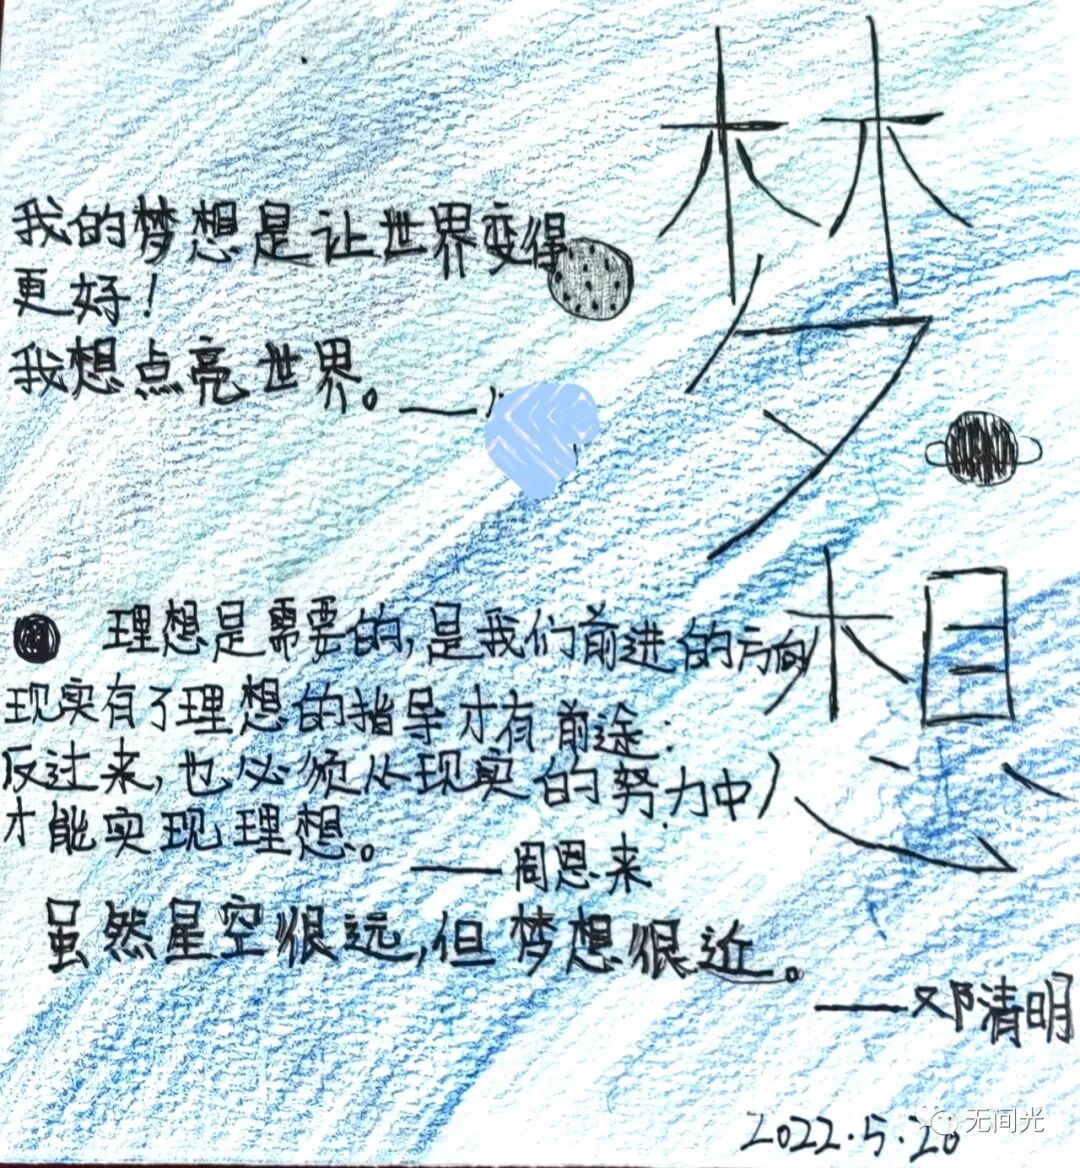 梦想
我的梦想是让世界变得
更好!
我想点亮世界。——
理想是需要的,是我们前进的方向
现实有了理想的指导才有前途.
反过来,也必须从现实的努力中
才能实现理想。
——周恩来
虽然星空很远,但梦想很近。
——邓清明
2022.5.20
无间光